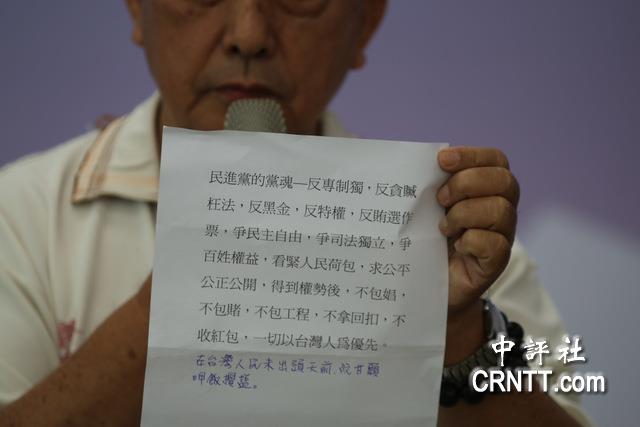 民進黨的黨魂—反專制獨，反貪贓
枉法，反黑金，反特權，反賄選作
票，爭民主自由，爭司法獨立，爭
百姓權益，看緊人民荷包，求公平
公正公開，得到權勢後，不包娼，
不包賭，不包工程，不拿回扣，不
收紅包，一切以台灣人為優先。
在台灣人民未出頭天前，阮甘願
呷飯攪鹽。
中評社
CRNTT.com